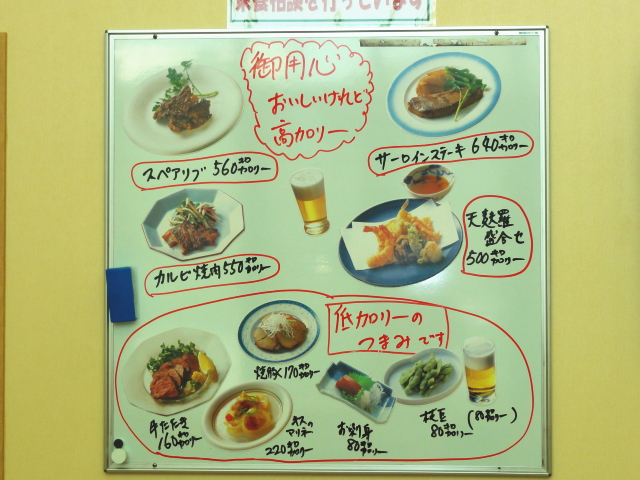 栄養相談を行っています
御用心
おいしいけれど
高カロリー
スペアリブ 560キロカロリー
サーロインステーキ 640キロカロリー
カルビ焼肉 550キロカロリー
天麩羅
盛合せ
500キロカロリー
低カロリーの
つまみです
焼豚 170キロカロリー
牛たたき
160キロカロリー
キスの
マリネ
220キロカロリー
お刺身
80キロカロリー
枝豆
80キロカロリー
(80キロカロリー)